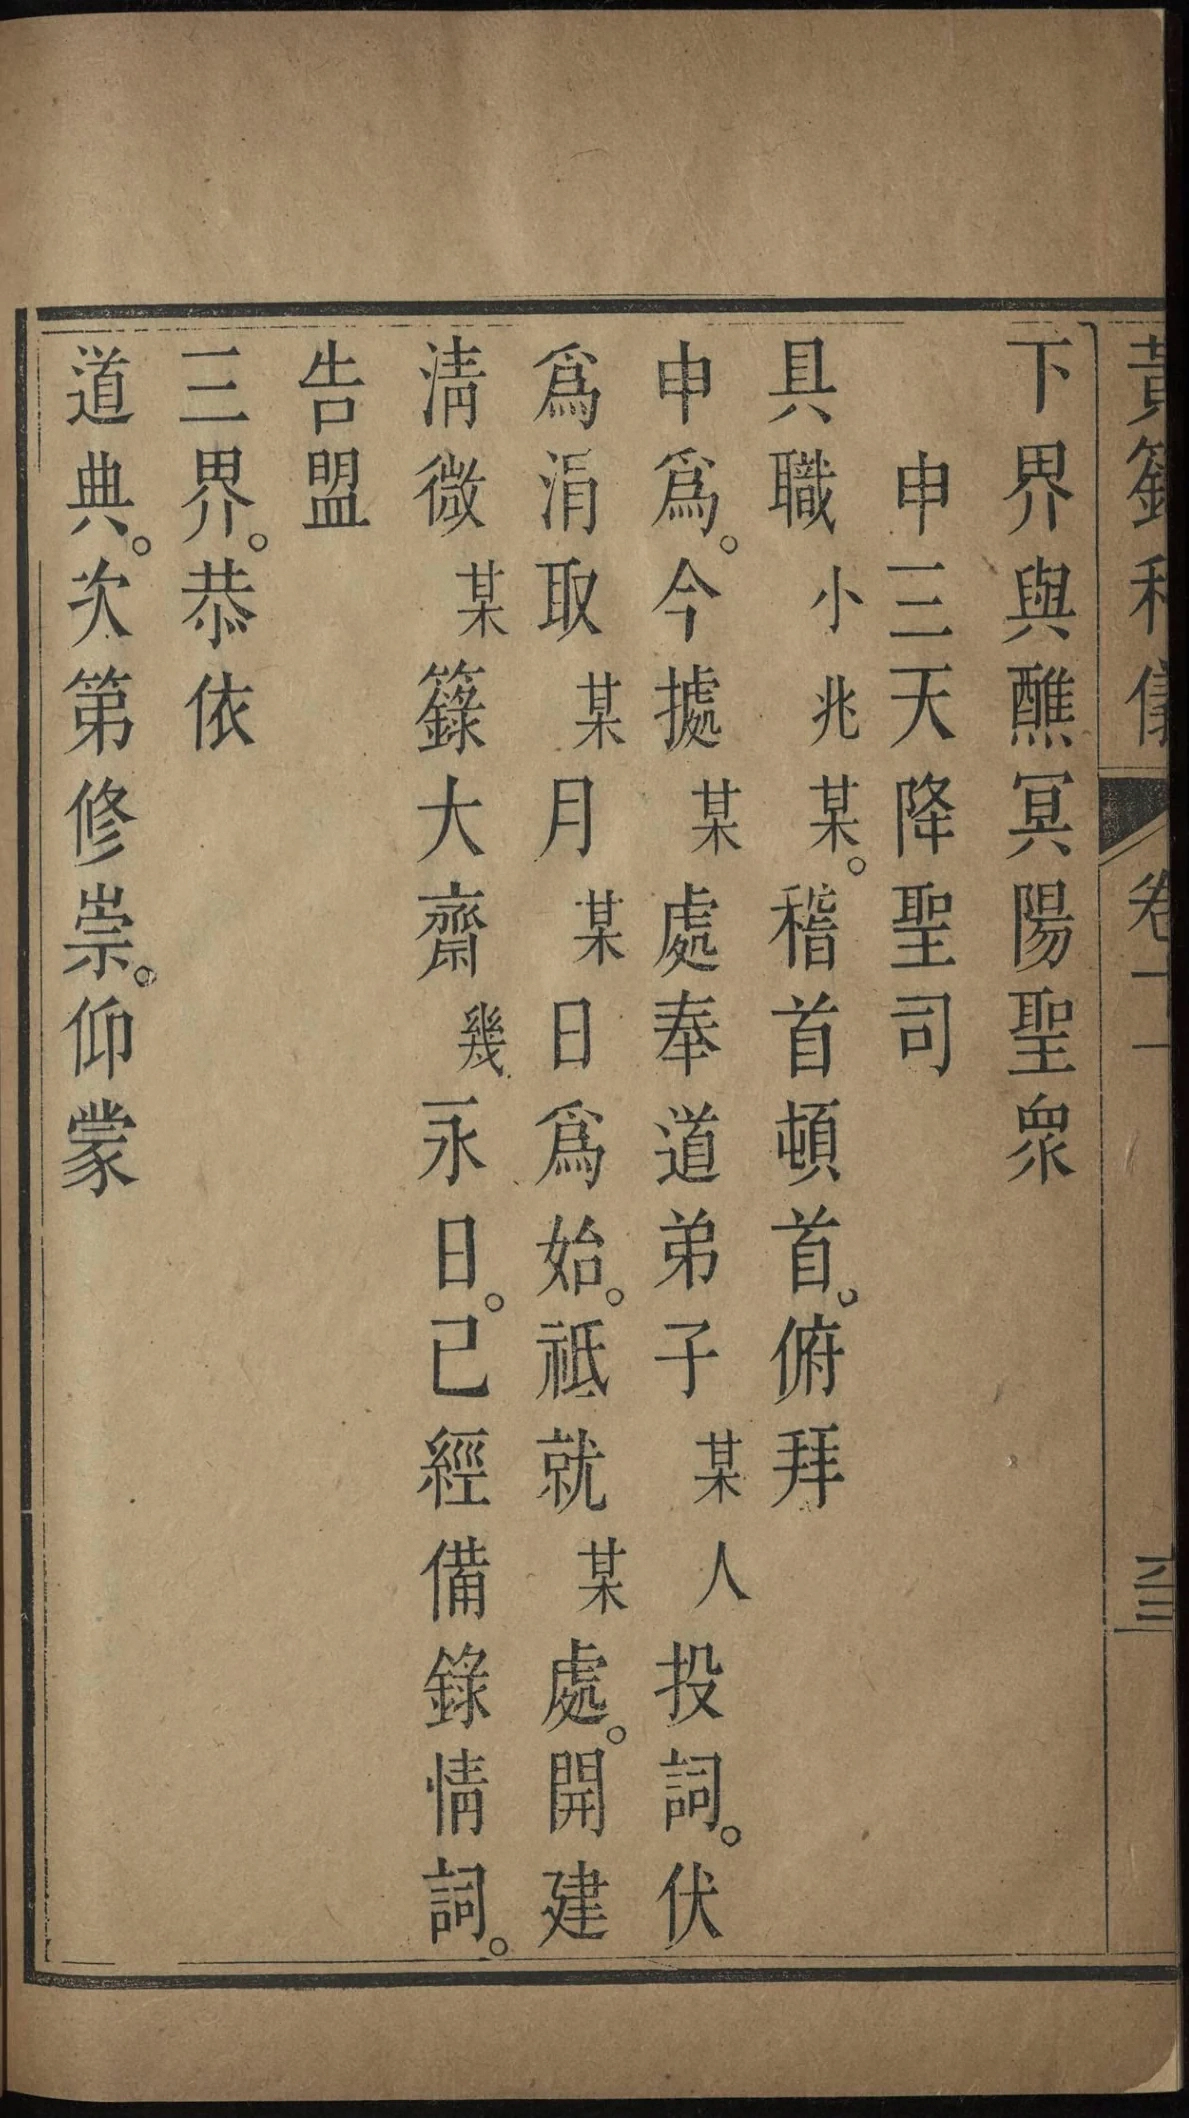 黃籙科儀 卷十一 六三
下界與醮冥陽聖眾
申三天降聖司
具職小兆某。稽首頓首。俯拜
申爲。今據某處奉道弟子某人投詞。伏
爲涓取某月某日爲始。祗就某處。開建
清微某籙大齋幾永日。已經備錄情詞。
告盟
三界。恭依
道典。次第修崇。仰蒙